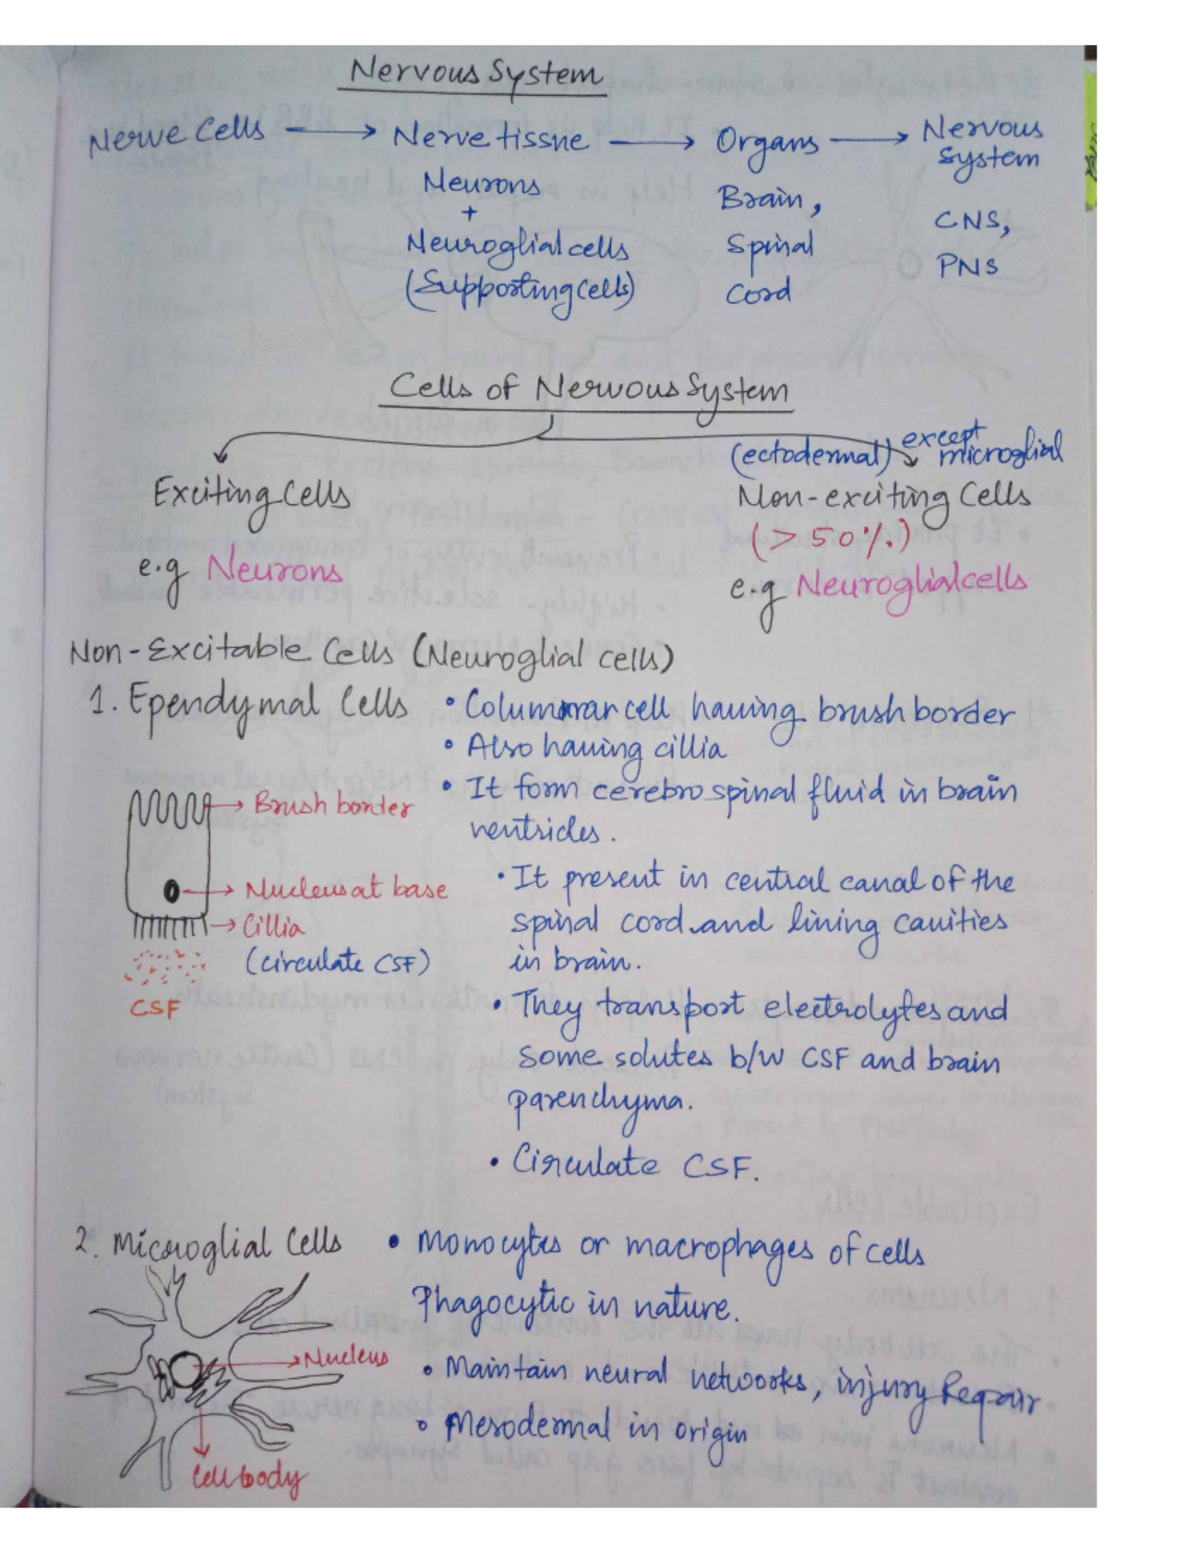 Nervous System
Nerve Cells → Nerve tissue → Organs → Nervous System
Neurons
+
Neuroglial cells
(Supporting cells)
Brain,
Spinal
Cord
CNS,
PNS
Cells of Nervous System
Exciting Cells
e.g Neurons
(ectodermal) except microglial
Non-exciting Cells
(> 50%)
e.g Neuroglial cells
Non-Excitable Cells (Neuroglial cells)
1. Ependymal Cells
• Columnar cell having brush border
• Also having cillia
• It form cerebro spinal fluid in brain
ventricles.
• It present in central canal of the
spinal cord and lining cavities
in brain.
• They transport electrolytes and
some solutes b/w CSF and brain
parenchyma.
• Circulate CSF.
→ Brush border
→ Nucleus at base
→ Cillia
(circulate CSF)
CSF
2. Microglial Cells
• Monocytes or macrophages of cells
Phagocytic in nature.
• Maintain neural networks, injury Repair
• Mesodermal in origin
→ Nucleus
Cell body